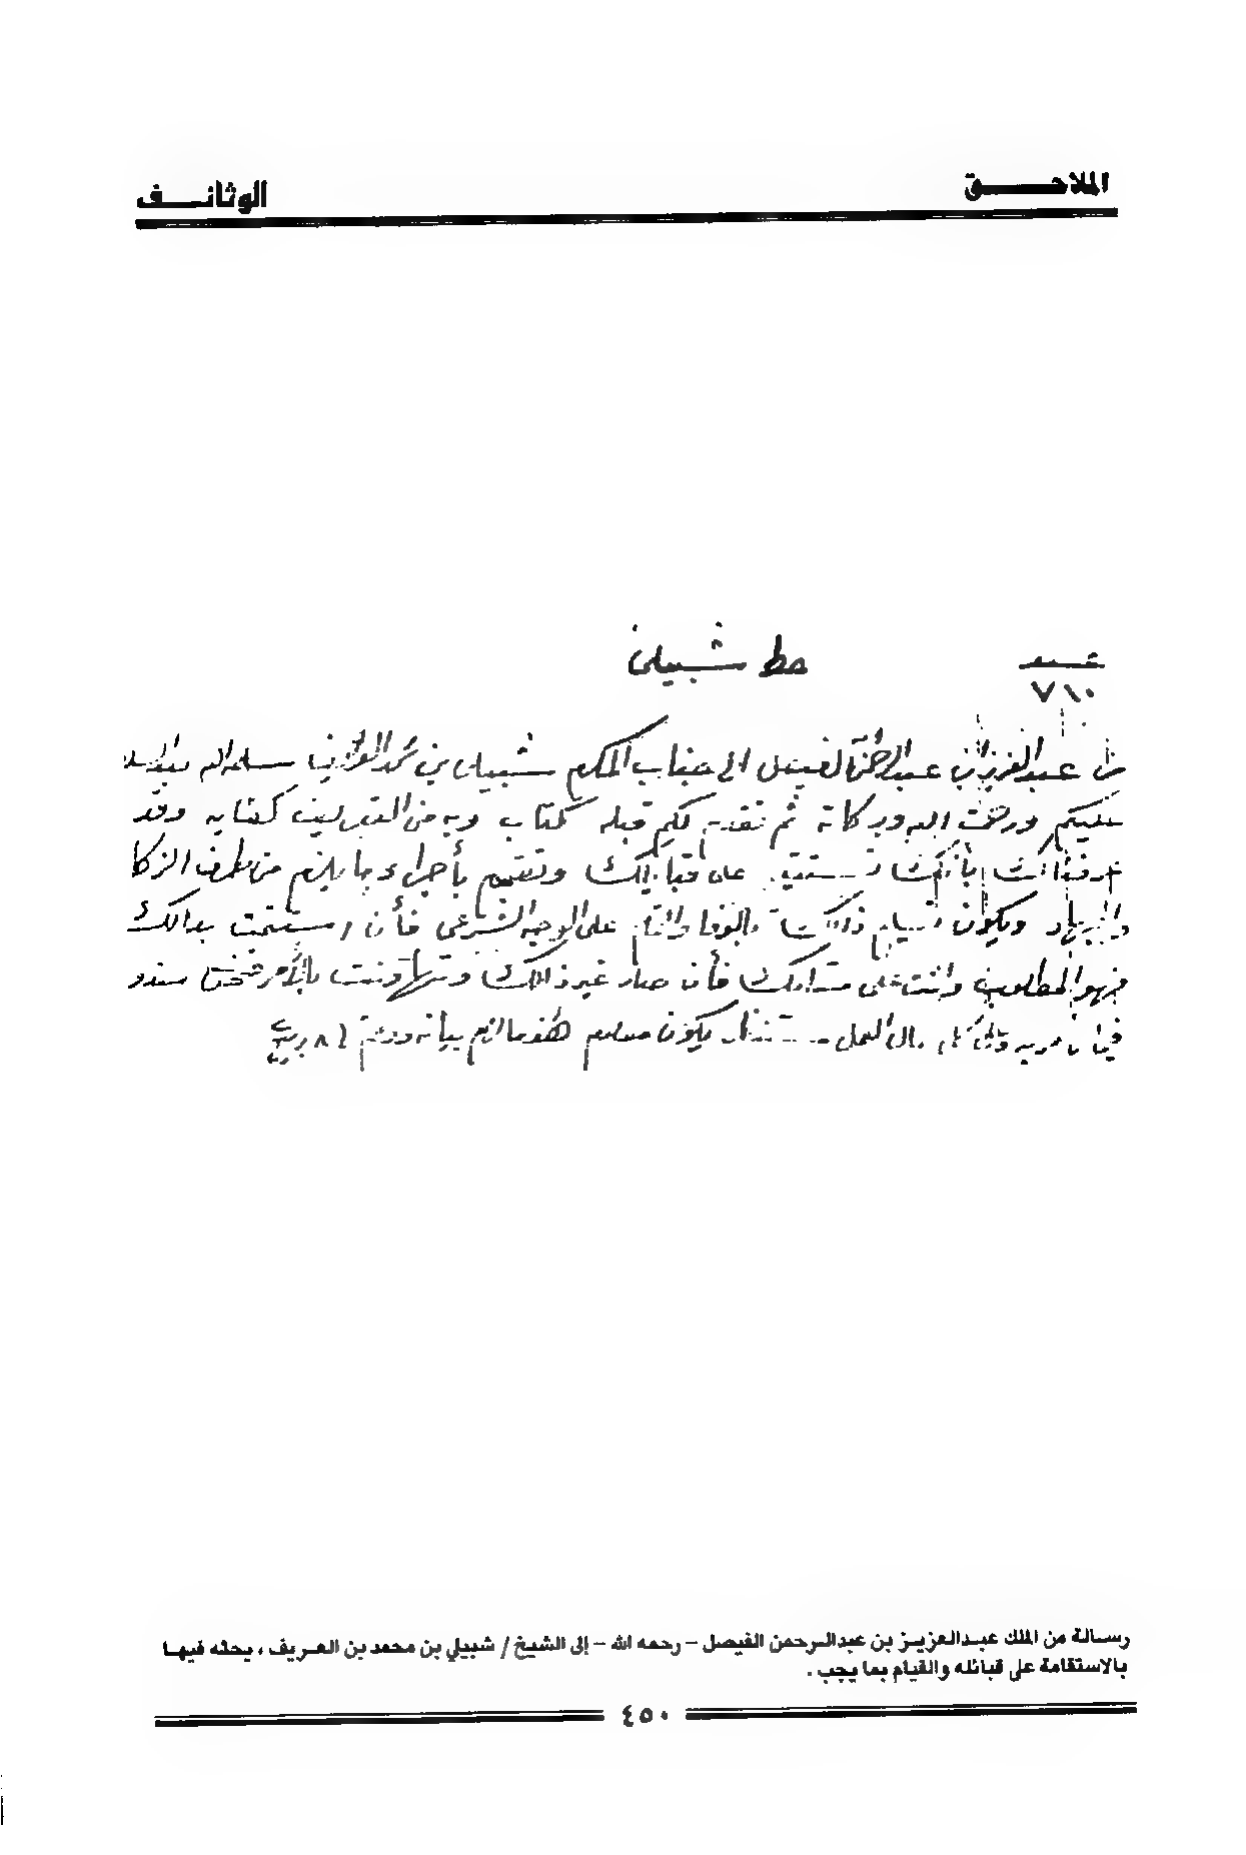 الملاحـــق
الوثائـــف
عــدد
٧١٠
خط شبيلي
من عبدالعزيز بن عبدالرحمن الفيصل الى جناب المكرم شبيلي بن محمد العريف سلمه الله بعد السلام
عليكم ورحمت الله وبركاته ثم تقدم لكم قبله كتاب وبه من التعريف كفايه وقد
عرفناك بأنك تستقيم على قبايلك وتقوم بأجراء ما يلزم من طرف الزكا
والجهاد ويكون ذالك بالوفا والتمام على الوجه الشرعي فأن استقمت بذالك
فهو المطلوب وانت على فأن صار غير ذالك وتهاونت بالأمر فنحن
يكون معلوم هذا مالزم بيانه ودمتم
رسالة من الملك عبدالعزيز بن عبدالرحمن الفيصل – رحمه الله – إلى الشيخ / شبيلي بن محمد بن العريف ، يحثه فيها
بالاستقامة على قبائله والقيام بما يجب .
٤٥٠